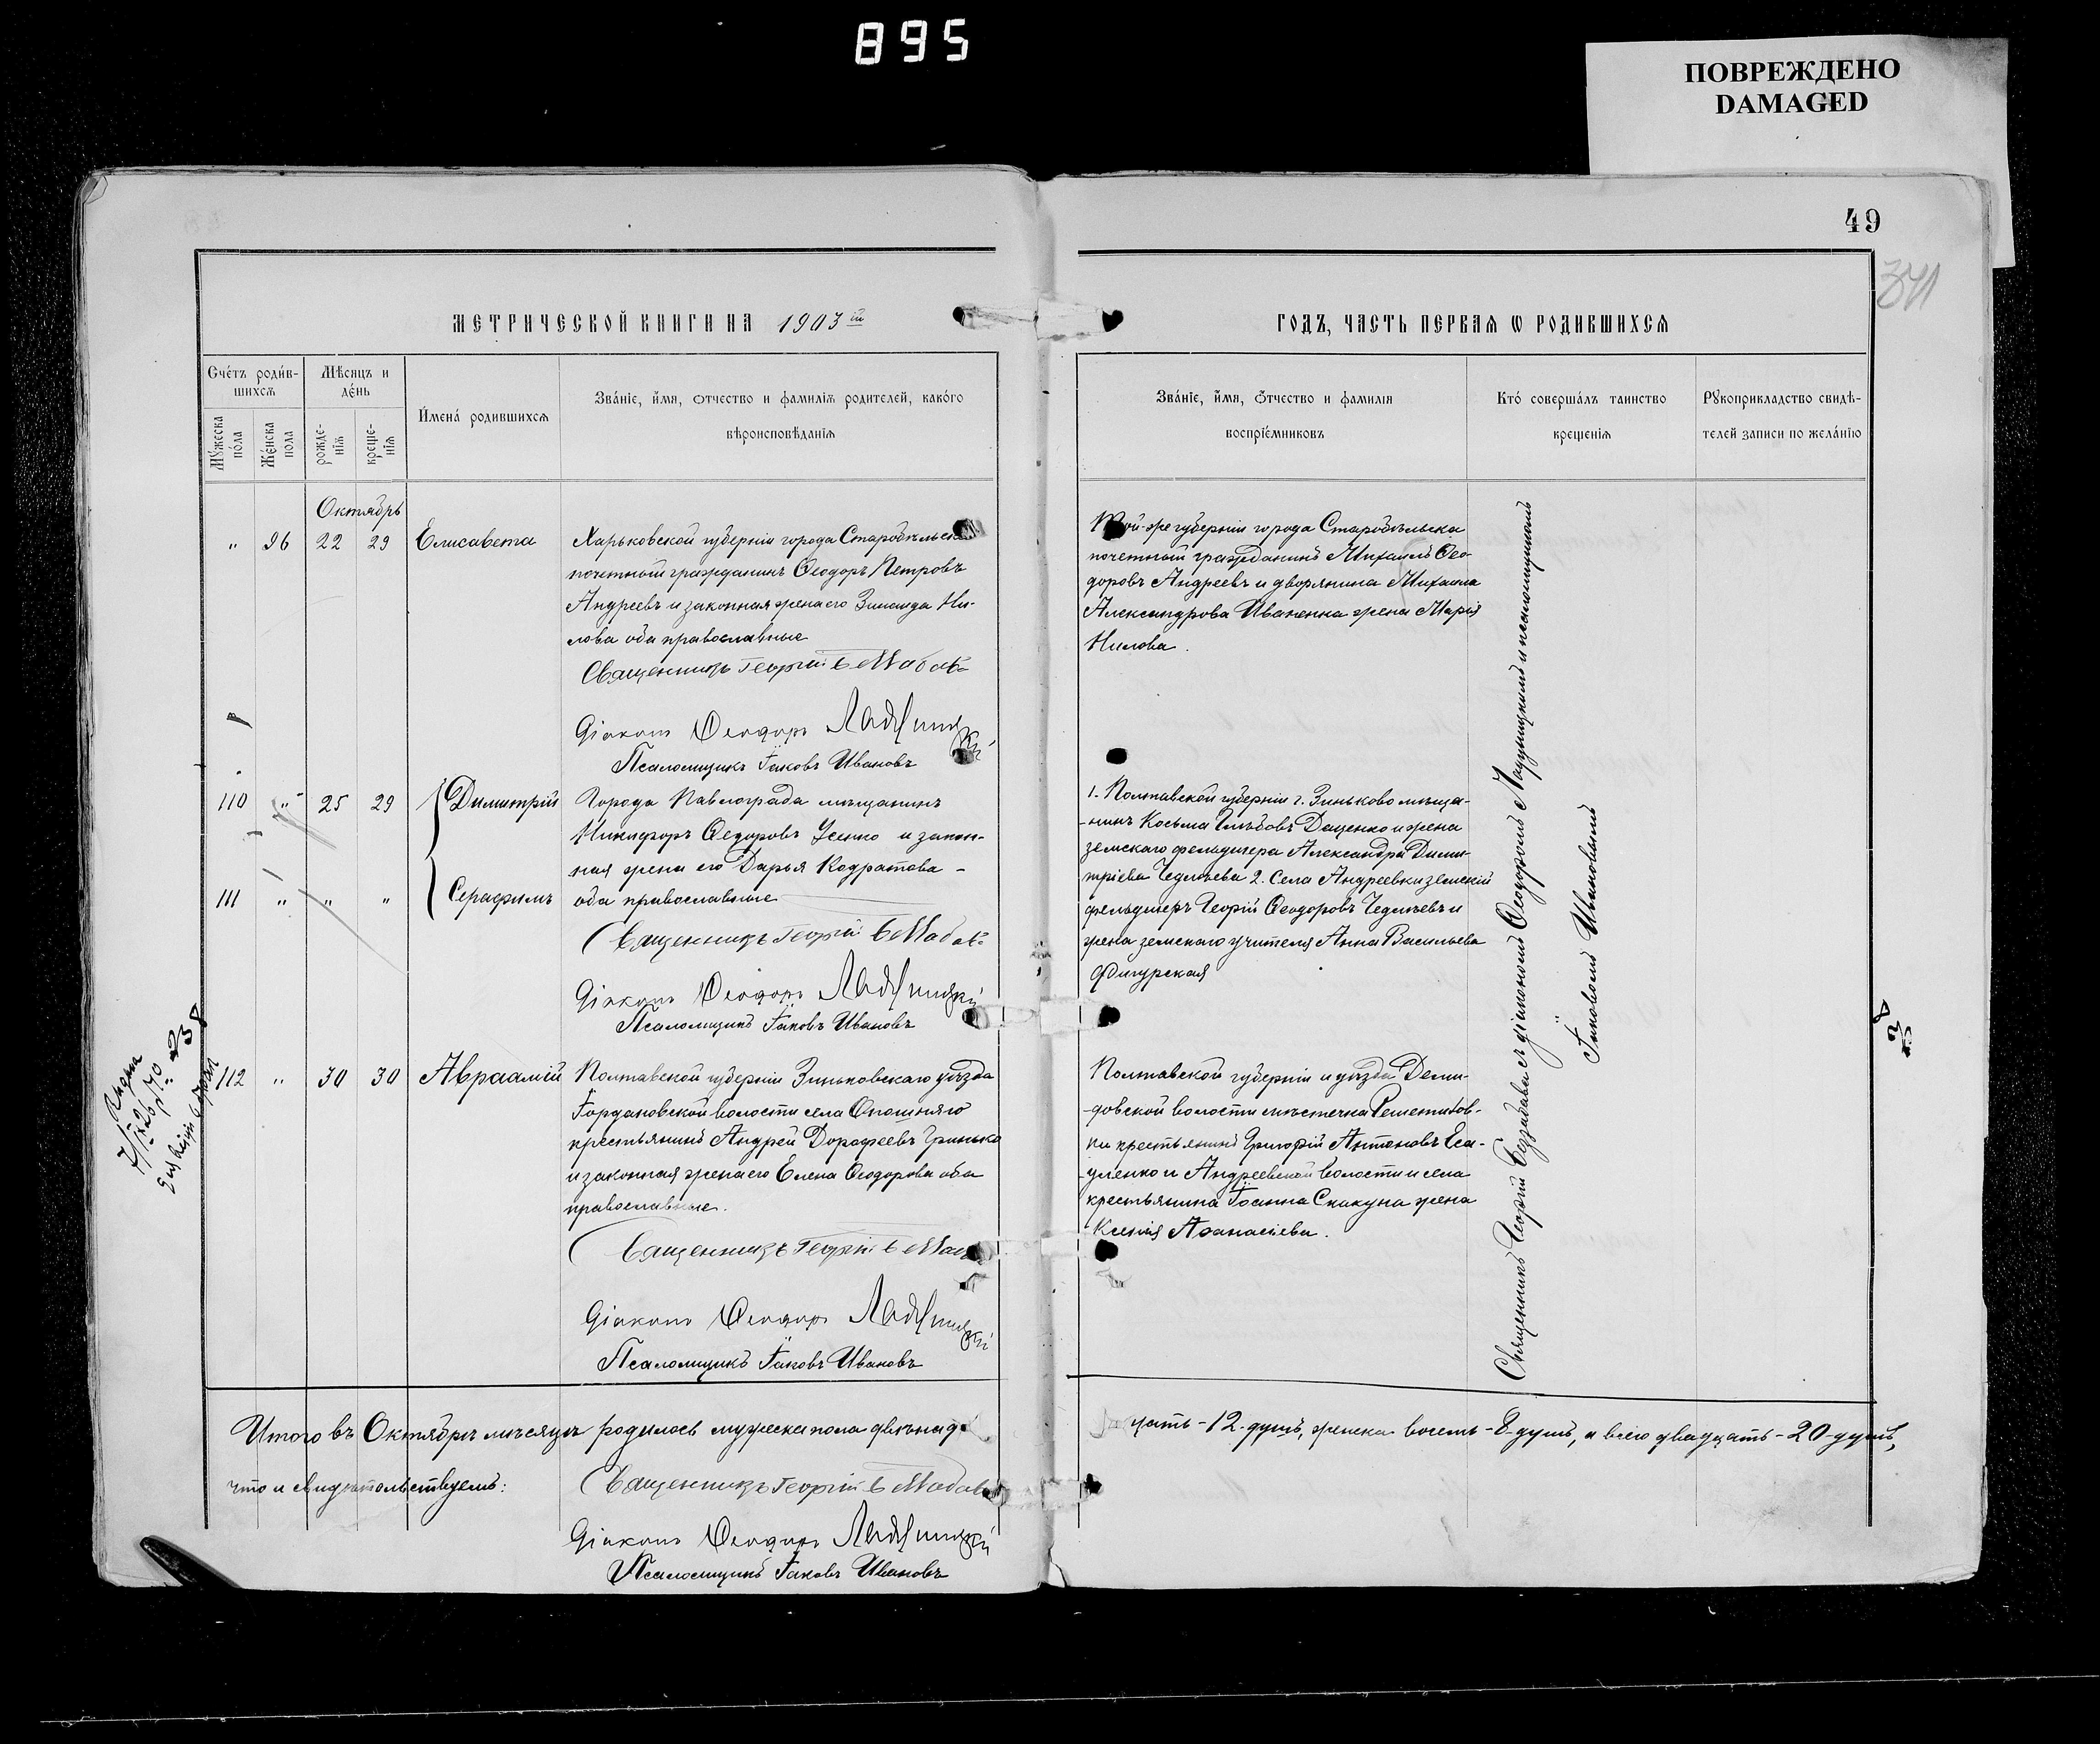 895
ПОВРЕЖДЕНО
DAMAGED
49
341
МЕТРИЧЕСКОЙ КНИГИ НА 1903 ій
Счетъ родив-
шихся
Мужеска
пола
Женска
пола
Мѣсяцъ и
день
рожде-
нія
креще-
нія
Имена родившихся
Званіе, имя, отчество и фамилія родителей, какого
вѣроисповѣданія
Октябрь
" 96 22 29 Елисавета
Харьковской губерніи города Старобѣльска
почетный гражданинъ Ѳеодоръ Петровъ
Андреевъ и законная жена его Зинаида Ни-
лова оба православные
Священникъ Георгій
Діаконъ Ѳеодоръ
Псаломщикъ Іаковъ Ивановъ
110 " 25 29 Димитрій
111 " " " Серафимъ
Города Павлограда мѣщанинъ
Никифоръ Ѳедоровъ Усенко и закон-
ная жена его Дарья Кодратова -
оба православные
Священникъ Георгій
Діаконъ Ѳеодоръ
Псаломщикъ Іаковъ Ивановъ
112 " 30 30 Авраамій
Полтавской губерніи Зиньковскаго уѣзда
Іордановской волости села Опошняго
крестьянинъ Андрей Дорофеевъ Гринько
и законная жена его Елена Ѳеодорова оба
православные.
Священникъ Георгій
Діаконъ Ѳеодоръ
Псаломщикъ Іаковъ Ивановъ
Итого въ Октябрѣ мѣсяцѣ родилось мужеска пола двѣнад-
что и свидѣтельствуемъ:
Священникъ Георгій
Діаконъ Ѳеодоръ
Псаломщикъ Іаковъ Ивановъ
ГОДЪ, ЧАСТЬ ПЕРВАЯ Ѡ РОДИВШИХСЯ
Званіе, имя, отчество и фамилія
воспріемниковъ
Кто совершалъ таинство
крещенія
Рукоприкладство свидѣ-
телей записи по желанію
Той-же губерніи города Старобѣльска
почетный гражданинъ Михаилъ Ѳео-
доровъ Андреевъ и дворянина Михаила
Александрова Иваненка жена Марія
Нилова.
1. Полтавской губерніи г. Зиньково мѣща-
-нинъ Косьма Глѣбовъ Даценко и жена
земскаго фельдшера Александра Дими-
тріева 2. Села Андреевки земскій
фельдшеръ Георгій Ѳеодоровъ и
жена земскаго учителя Анна Васильева
Фигурская
Полтавской губерніи и уѣзда Деми-
-довской волости мѣстечка Решетилов-
ки крестьянинъ Григорій Антоновъ Еса-
уленко и Андреевской волости и села
крестьянина Іоанна Скакуна жена
Ксенія Аѳанасіева.
Священникъ Георгій съ діакономъ Ѳеодоромъ и псаломщикомъ
Іаковомъ Ивановымъ
цать - 12 - душъ, женска восемь - 8 - душъ, а всего двадцать - 20 - душъ,